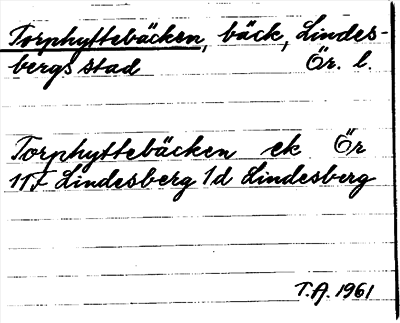 Torphyttebäcken, bäck, Lindes-
bergs stad Ör. l.
Torphyttebäcken ek Ör
11F Lindesberg 1d Lindesberg
T.A. 1961